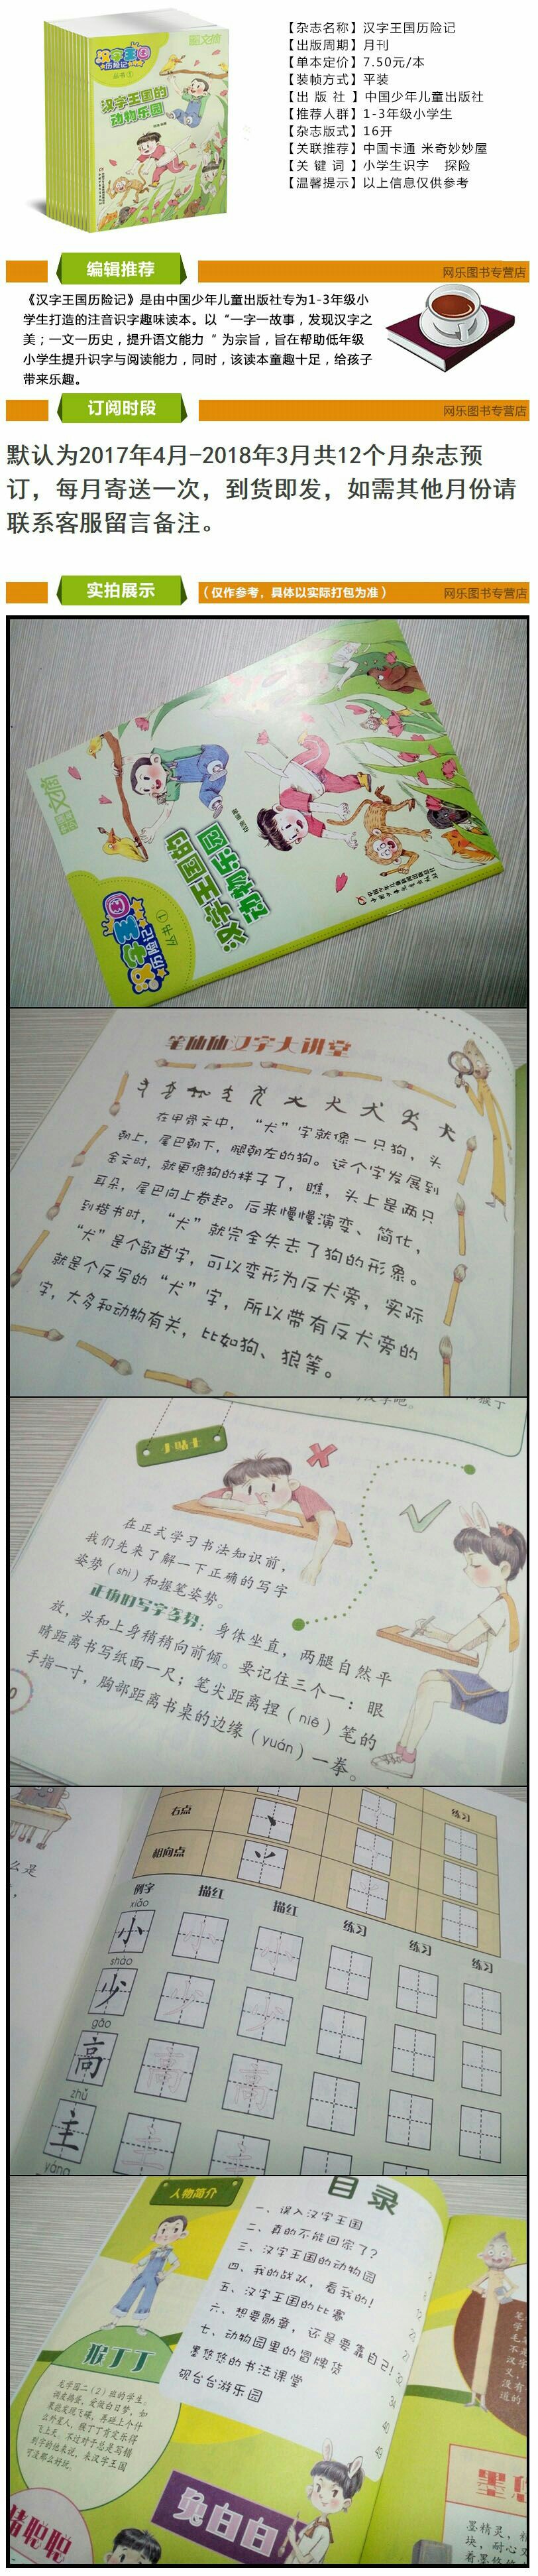 汉字王国
历险记
丛书①
文摘
汉字王国的
动物乐园
【杂志名称】汉字王国历险记
【出版周期】月刊
【单本定价】7.50元/本
【装帧方式】平装
【出 版 社 】中国少年儿童出版社
【推荐人群】1-3年级小学生
【杂志版式】16开
【关联推荐】中国卡通 米奇妙妙屋
【关 键 词 】小学生识字 探险
【温馨提示】以上信息仅供参考
编辑推荐
网乐图书专营店
《汉字王国历险记》是由中国少年儿童出版社专为1-3年级小
学生打造的注音识字趣味读本。以“一字一故事，发现汉字之
美；一文一历史，提升语文能力 ”为宗旨，旨在帮助低年级
小学生提升识字与阅读能力，同时，该读本童趣十足，给孩子
带来乐趣。
订阅时段
网乐图书专营店
默认为2017年4月-2018年3月共12个月杂志预
订，每月寄送一次，到货即发，如需其他月份请
联系客服留言备注。
实拍展示
（仅作参考，具体以实际打包为准）
网乐图书专营店
文摘
汉字王国的
动物乐园
汉字王国
历险记
丛书①
笔仙仙汉字大讲堂
在甲骨文中，“犬”字就像一只狗，头
朝上，尾巴朝下，腿朝左的狗。这个字发展到
金文时，就更像狗的样子了，瞧，头上是两只
耳朵，尾巴向上卷起。后来慢慢演变、简化，
到楷书时，“犬”就完全失去了狗的形象。
“犬”是个部首字，可以变形为反犬旁，实际
就是个反写的“犬”字，所以带有反犬旁的
字，大多和动物有关，比如狗、狼等。
小贴士
在正式学习书法知识前，
我们先来了解一下正确的写字
姿势（shì）和握笔姿势。
正确的写字姿势：身体坐直，两腿自然平
放，头和上身稍稍向前倾。要记住三个一：眼
睛距离书写纸面一尺；笔尖距离捏（niē）笔的
手指一寸，胸部距离书桌的边缘（yuán）一拳。
右点
练习
相向点
例字
描红
描红
练习
练习
练习
xiǎo
小
shǎo
少
gāo
高
zhǔ
主
yáng
人物简介
目录
一、误入汉字王国
二、真的不能回家了？
三、汉字王国的动物园
四、我的战队，看我的！
五、汉字王国的比赛
六、想要勋章，还是要靠自己！
七、动物园里的冒牌货
墨悠悠的书法课堂
砚台台游乐园
猴丁丁
兔白白
猪聪聪